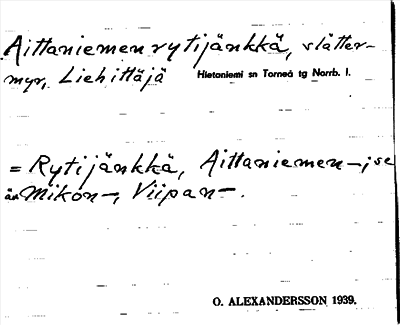 Aittaniemen rytijänkkä, slåtter-
myr, Liehittäjä Hietaniemi sn Torneå tg Norrb. l.
= Rytijänkkä, Aittaniemen –, se
än Mikon –, Viipan –.
O. ALEXANDERSSON 1939.